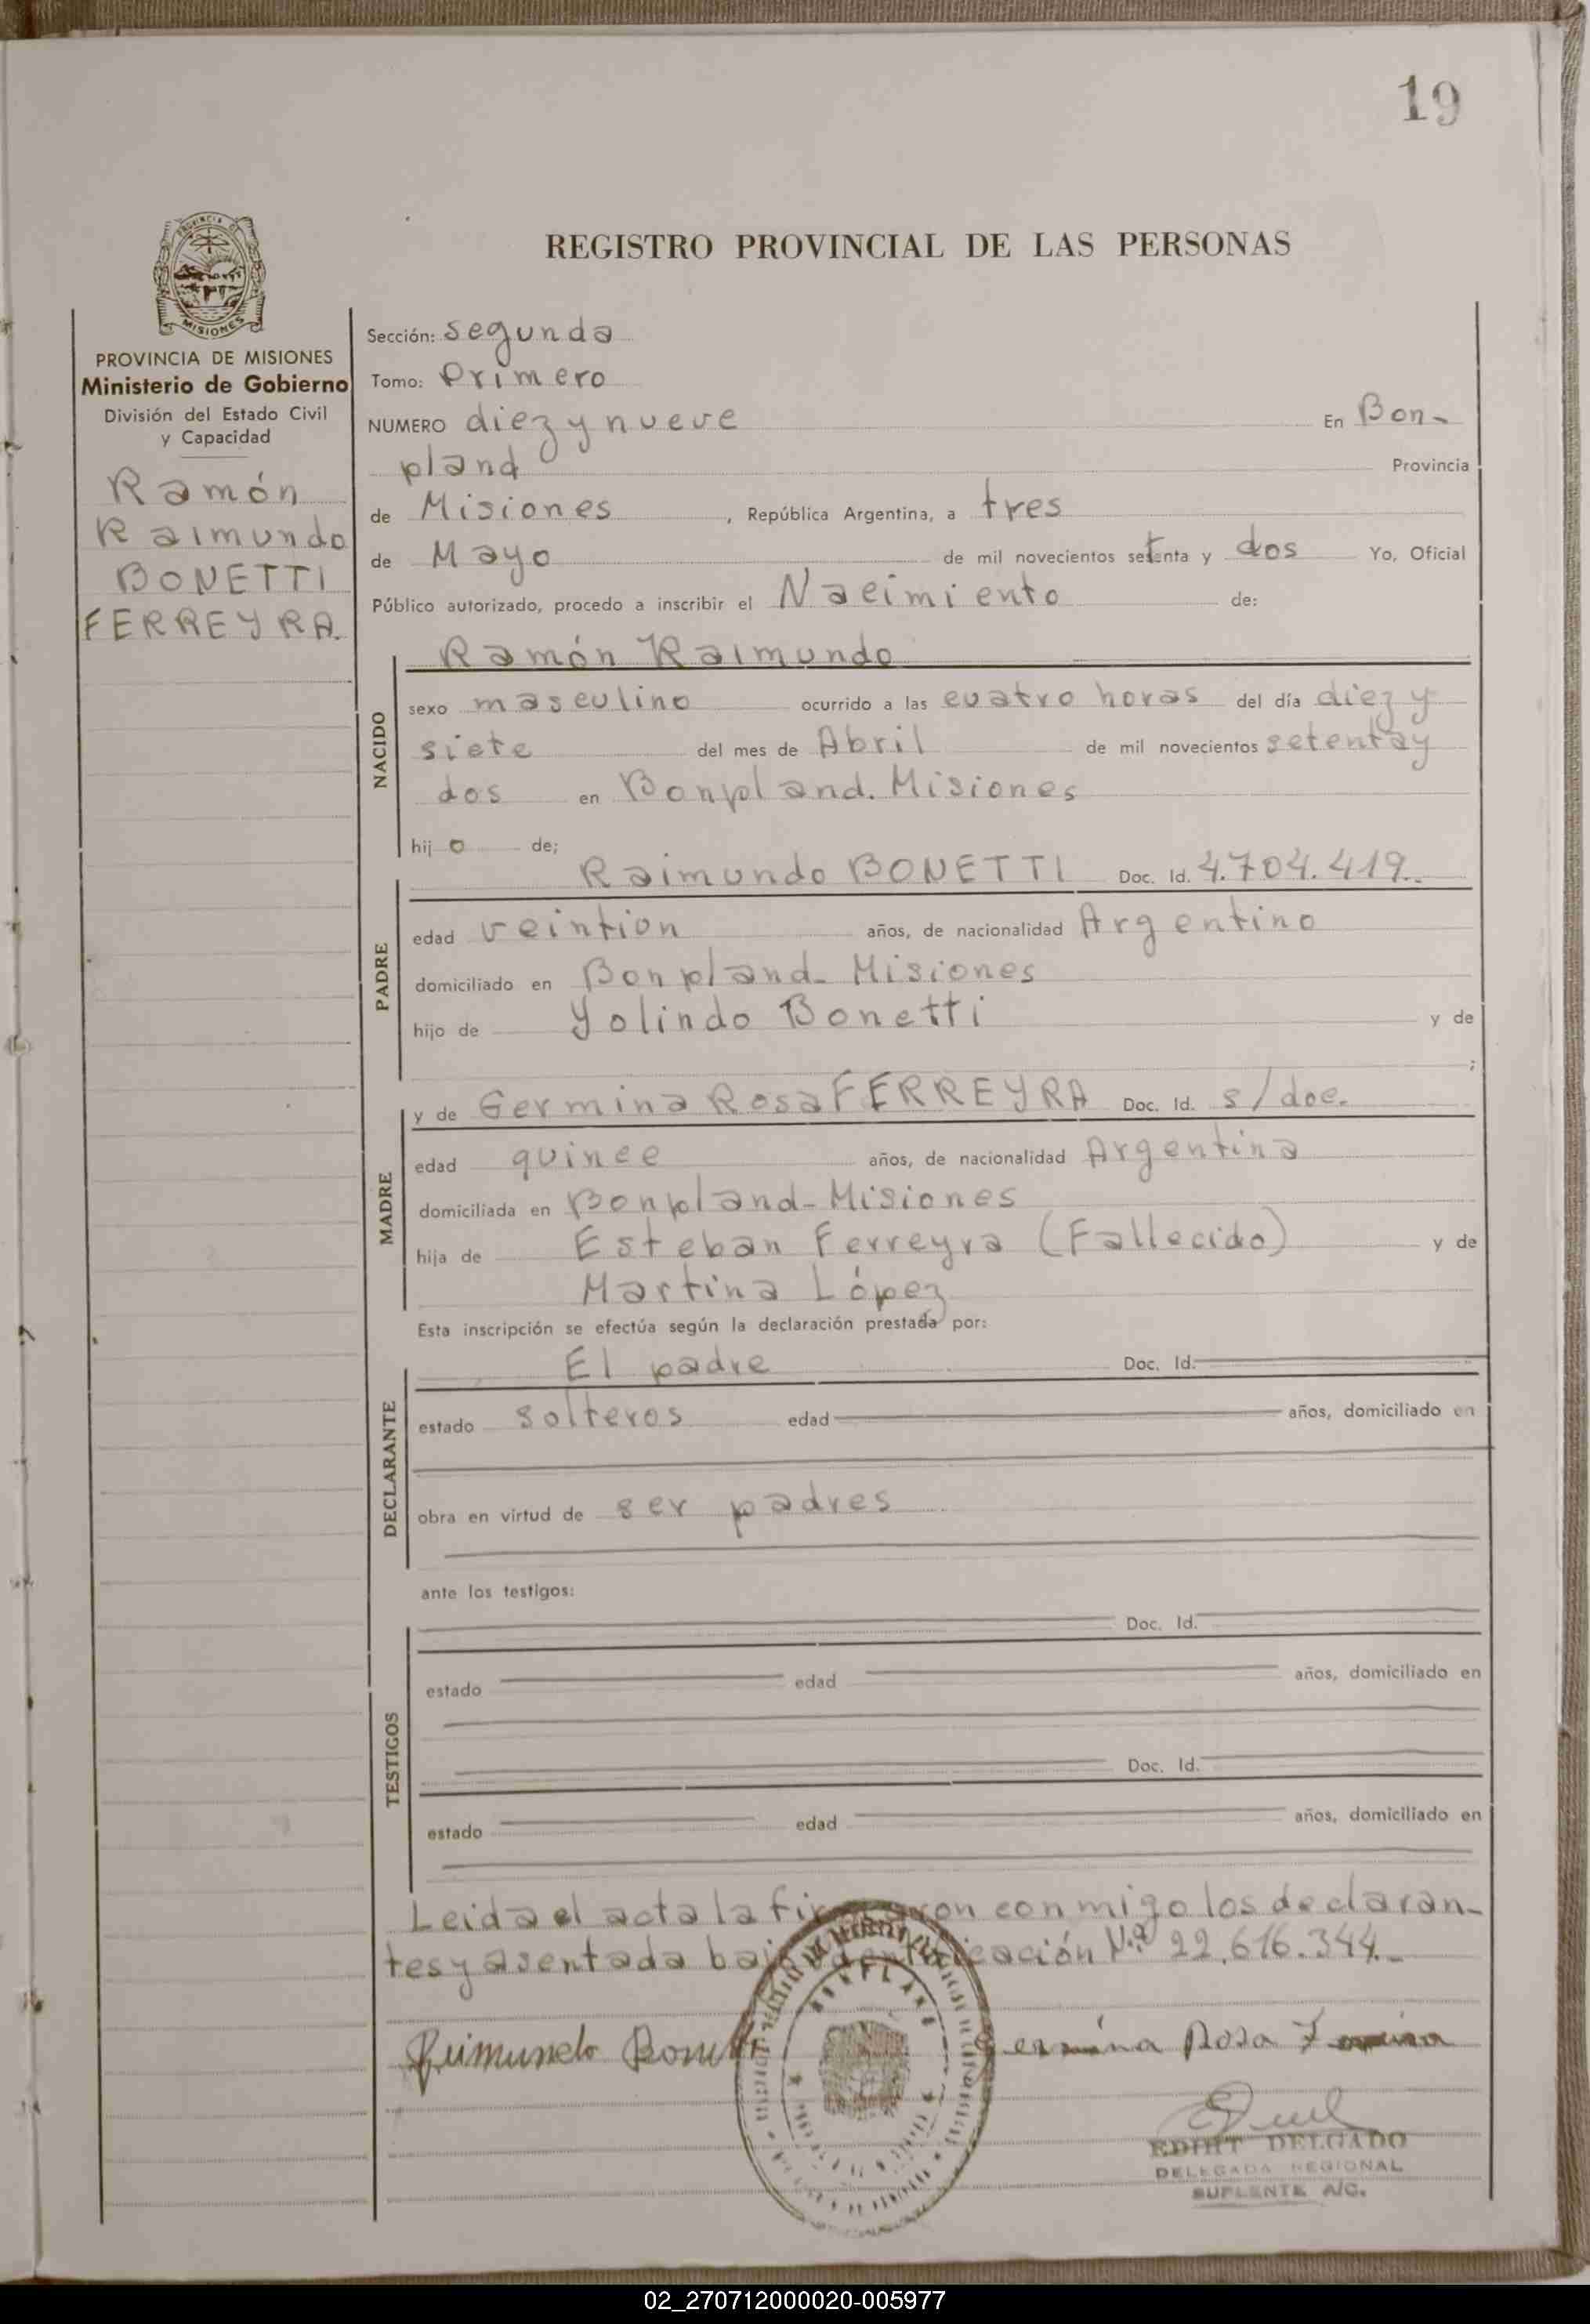 19
PROVINCIA DE
MISIONES
REGISTRO PROVINCIAL DE LAS PERSONAS
PROVINCIA DE MISIONES
Ministerio de Gobierno
División del Estado Civil
y Capacidad
Ramón
Raimundo
BONETTI
FERREYRA.
Sección: segunda
Tomo: Primero
NUMERO diez y nueve En Bon-
pland Provincia
de Misiones, República Argentina, a tres
de Mayo de mil novecientos setenta y dos Yo, Oficial
Público autorizado, procedo a inscribir el Nacimiento de:
NACIDO
Ramón Raimundo
sexo masculino ocurrido a las cuatro horas del día diez y
siete del mes de Abril de mil novecientos setenta y
dos en Bonpland. Misiones
hijo de;
PADRE
Raimundo BONETTI Doc. Id. 4.704.419.
edad veintion años, de nacionalidad Argentino
domiciliado en Bonpland- Misiones
hijo de Yolindo Bonetti y de
;
MADRE
y de Germina Rosa FERREYRA Doc. Id. s/doc.
edad quince años, de nacionalidad Argentina
domiciliada en Bonpland-Misiones
hija de Esteban Ferreyra (Fallecido) y de
Martina López
Esta inscripción se efectúa según la declaración prestada por:
DECLARANTE
El padre Doc. Id.
estado solteros edad años, domiciliado en
obra en virtud de ser padres
ante los testigos:
TESTIGOS
Doc. Id.
estado edad años, domiciliado en
Doc. Id.
estado edad años, domiciliado en
Leida el acta la firmaron conmigo los declaran-
tes y asentada bajo identificación Nº 22.616.344.-
BONPLAND
Raimundo Bonetti Germina Rosa
EDIHT DELGADO
DELEGADA REGIONAL
SUPLENTE A/C.
02_270712000020-005977